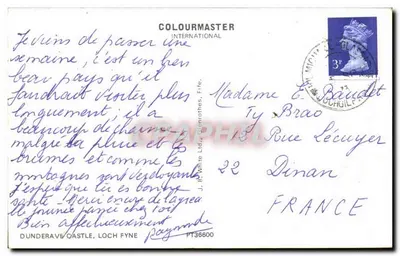 COLOURMASTER
INTERNATIONAL
Je viens de passer une
semaine, c'est un bien
beau pays qu'il
faudrait visiter plus
longuement, il a
beaucoup de charme
malgré la pluie et les
brumes et comme les
montagnes sont verdoyantes
J'espère que tu es bonne
santé - Merci encore de la
journée passée chez toi
Bien affectueusement
Raymonde
DUNDERAVE CASTLE, LOCH FYNE
PT36600
J. White Ltd., Carnoustie, Fife.
3P
Madame E. Baudet
Ty Brao
2 Rue Lécuyer
22 Dinan
FRANCE